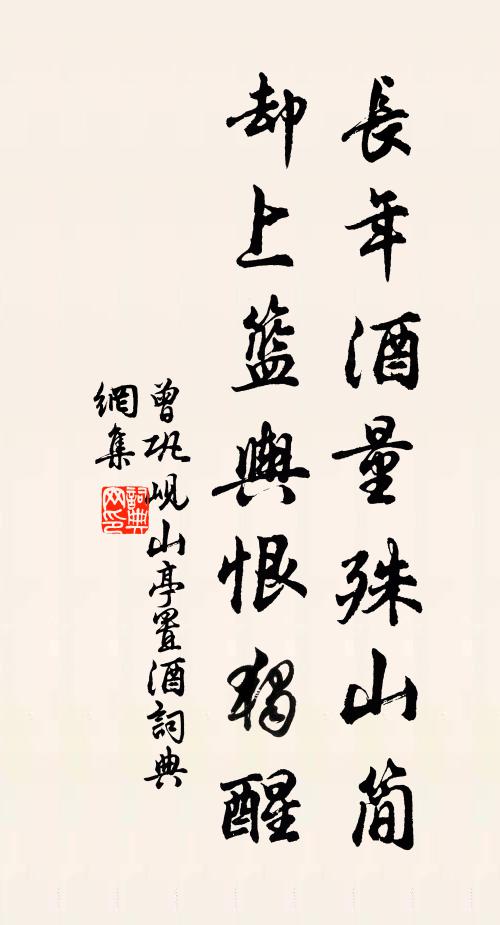 長年酒量殊山简
却上籃輿恨獨醒
曾巩岘山亭置酒詞典
網集
詞典
网印